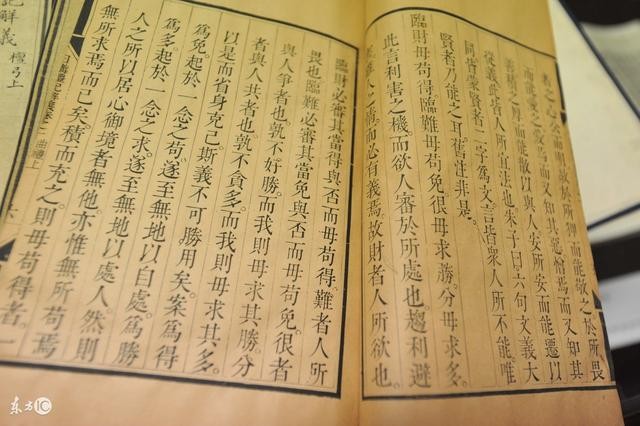 者之心公而明故於所狎而能敬之於所畏
而能愛之於愛焉而又知其惡憎焉而又知其
善積焉而能散以與人安所安而能遷以
從義此皆人所宜法也朱子曰六句文義大
同皆蒙賢者二字為文言皆衆人所不能唯
賢者乃能之耳舊注非是。
臨財毋苟得。臨難毋苟免。很毋求勝。分毋求多。
此言利害之機。而欲人審於所處也。趨利避
人情而必有義焉。故財者人所欲也。
臨財必審其當得與否而毋苟得。難者人所
畏也。臨難必審其當免與否。而毋苟免。很者
與人爭者也。孰不好勝。而我則毋求其勝。分
者與人共者也。孰不貪多。而我則毋求其多。
以是而省身克己。斯義不可勝用矣。案爲得
爲免。起於一念之苟。遂至無地以自處。爲勝
爲多。起於一念之求。遂至無地以處人。然則
人之所以居心御境者無他。亦惟無所苟焉
無所求焉而已矣。積而充之。則毋苟得者。一
日講禮記解義卷二 曲禮上
記解義 檀弓上
东方IC